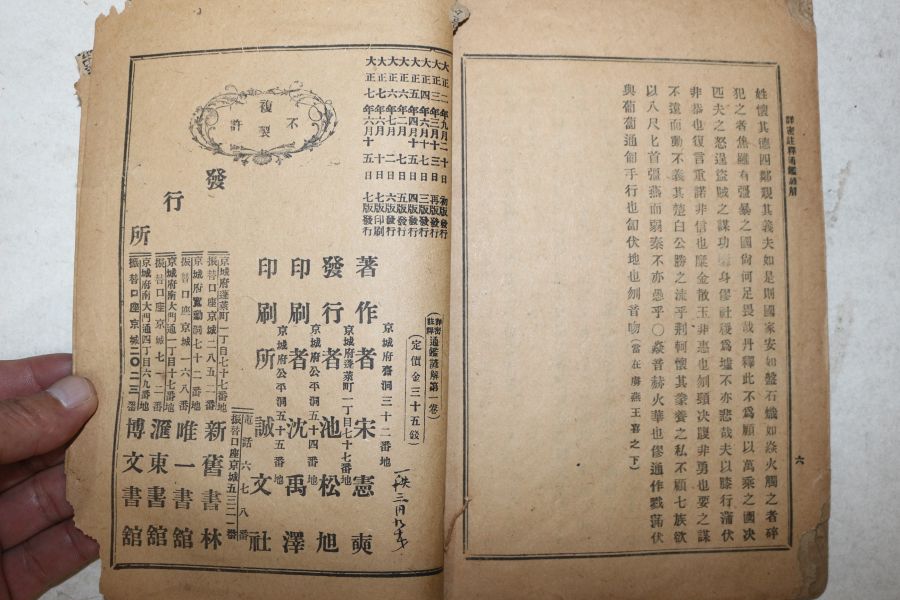 詳密註釋通鑑諺解
六
姓懷其德四鄰覩其義夫如是則國家安如盤石熾如焱火觸之者碎
犯之者焦雖有彊暴之國尙何足畏哉丹釋此不爲顧以萬乘之國决
匹夫之怒逞盜賊之謀功隳身僇社稷爲墟不亦悲哉夫以膝行蒲伏
非恭也復言重諾非信也糜金散玉非惠也刎頸决腹非勇也要之謀
不遠而動不義其楚白公勝之流乎荆軻懷其豢養之私不顧七族欲
以八尺匕首彊燕而弱秦不亦愚乎〇焱音赫火華也僇通作戮蒲伏
與葡匐通匍手行也匐伏地也刎音吻(當在廣燕王喜之下)
大正二年九月二十日初版發行
大正三年三月十三日再版發行
大正四年六月十七日三版發行
大正五年四月十五日四版發行
大正六年二月七日五版發行
大正六年十月二日六版發行
大正七年六月十日七版印刷
大正七年六月十五日七版發行
不許複製
詳密註釋通鑑諺解第一卷
(定價金三十五錢)
京城府齋洞三十二番地
著作者 宋憲奭
京城府蓬萊町一丁目七十七番地
發行者 池松旭
京城府公平洞五十四番地
印刷者 沈禹澤
京城府公平洞五十五番地
印刷所 誠文社
發行所
電話六七八番
振替口座京城五三二一番
京城府蓬萊町一丁目七十七番地
振替口座京城二八五二番
新舊書林
京城府寬勳洞七十二番地
振替口座京城一六八番
唯一書館
京城府南大門通一丁目十七番地
振替口座京城七一二番
滙東書館
京城府南大門通四丁目六九番地
振替口座京城二〇二三番
博文書館